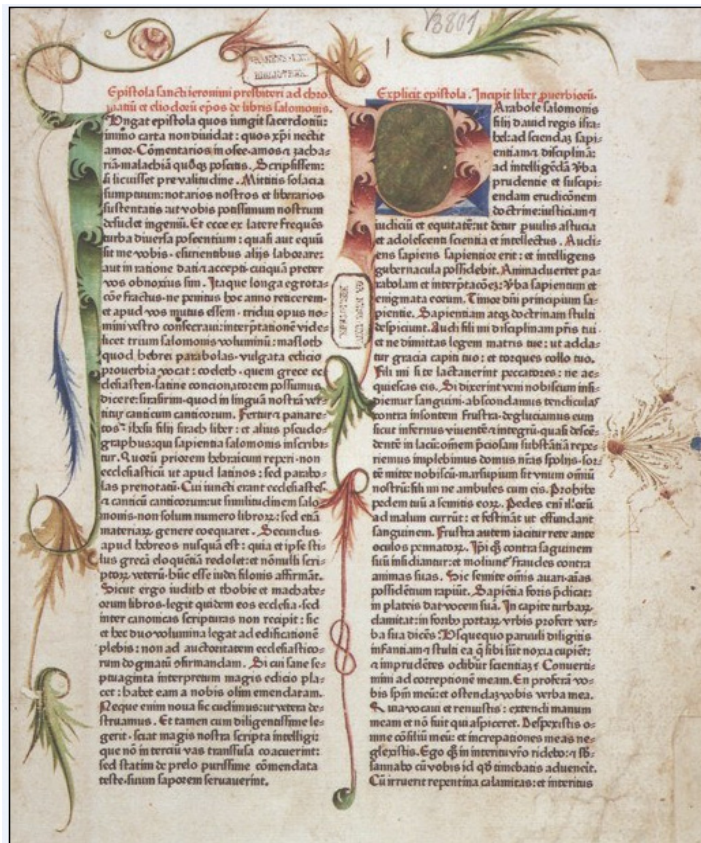 V3801
Epistola sancti ieronimi presbiteri ad chro
matiū et eliodorū ep̄os de libris salomonis.
Iungat epistola quos iungit sacerdotiū:
immo carta non diuidat: quos xp̄i nectit
amor. Cōmentarios in osee. amos ⁊ zacha-
riā. malachiā quoq̄ꝫ poscitis. Scripsissem:
si licuisset pre valitudine. Mittitis solacia
sumptuum: notarios nostros et librarios
sustentatis: ut vobis potissimum nostrum
desudet ingeniū. Et ecce ex latere frequēs
turba diuersa poscentium: quasi aut equū
sit me vobis esurientibus alijs laborare:
aut in ratione dati ⁊ accepti cuiquā preter
vos obnoxius sim. Itaque longa egrota-
cōe fractus. ne penitus hoc anno reticerem
et apud vos mutus essem. tridui opus no-
mini vestro consecraui: interp̄tationē vide
licet trium salomonis voluminū: masloth
quod hebrei parabolas. vulgata edicio
prouerbia vocat: coeleth. quem grece ec
clesiasten. latine concionatorem possumus
dicere: sirasirim. quod in linguā nostrā ver
titur canticum canticorum. Fertur ⁊ panare-
tos ihesu filij sirach liber: et alius pseudo
graphus: qui sapientia salomonis inscribi
tur. Quorū priorem hebraicum reperi. non
ecclesiasticū ut apud latinos: sed parabo-
las prenotatū. Cui iuncti erant ecclesiastes
⁊ canticū canticorum: ut similitudinem salo
monis. non solum numero libroꝝ: sed etiā
materiaꝝ genere coequaret. Secundus
apud hebreos nusquā est: quia et ipse sti
lus grecā eloquētiā redolet: et nōnulli scri-
ptoꝝ veterū. hūc esse iudei filonis affirmāt.
Sicut ergo iudith et thobie et machabe-
orum libros. legit quidem eos ecclesia. sed
inter canonicas scripturas non recipit: sic
et hec duo volumina legat ad edificationē
plebis: non ad auctoritatem ecclesiastico-
rum dogmatū ꝯfirmandam. Si cui sane se-
ptuaginta interpretum magis edicio pla-
cet: habet eam a nobis olim emendatam.
Neque enim noua sic cudimus: ut vetera de-
struamus. Et tamen cum diligentissime le-
gerit. sciat magis nostra scripta intelligi:
que nō in terciū vas transfusa coacuerint:
sed statim de prelo purissime cōmendata
teste. suum saporem seruauerint.
Explicit epistola. Incipit liber ꝓuerbiorū.
Parabole salomonis
filij dauid regis isra-
hel: ad sciendaꝫ sapi-
entiam ⁊ disciplinā:
ad intelligēda v̄ba
prudentie et suscipi-
endam erudicōnem
doctrine: iusticiam ⁊
iudiciū et equitatē: ut detur ꝑuulis astucia
et adolescenti scientia et intellectus. Audi-
ens sapiens sapientior erit: et intelligens
gubernacula possidebit. Animaduertet pa-
rabolam et interp̄tacōeꝫ: v̄ba sapientum et
enigmata eorum. Timor dn̄i principium sa-
pientie. Sapientiam atqꝫ doctrinam stulti
despiciunt. Audi fili mi disciplinam pr̄is tui
et ne dimittas legem matris tue: ut adda-
tur gracia capiti tuo: et torques collo tuo.
Fili mi si te lactauerint peccatores: ne ac-
quiescas eis. Si dixerint veni nobiscum insi
diemur sanguini. abscondamus tendiculas
contra insontem frustra. degluciamus eum
sicut infernus viuentē ⁊ integrū. quasi descē-
dentē in lacū: omnem p̄ciosam substātiā repe-
riemus implebimus domus nr̄as spolijs. sor-
tē mitte nobiscū. marsupium sit vnum om̄iū
nostrū: fili mi ne ambules cum eis. Prohibe
pedem tuū a semitis eoꝝ. Pedes eni illorū
ad malum currūt: et festināt ut effundant
sanguinem. Frustra autem iacitur rete ante
oculos pennatoꝝ. Ipi qꝫ contra sāguinem
suū insidiantur: et moliunt fraudes contra
animas suas. Sic semite om̄is auari. aīas
possidētium rapiūt. Sapiētia foris p̄dicat:
in plateis dat vocem suā. In capite turbaꝝ
clamitat: in forib⁹ portaꝝ vrbis profert ver-
ba sua dicēs. Vsquequo paruuli diligitis
infantiam ⁊ stulti ea q̄ sibi sūt noxia cupiēt:
⁊ imprudētes odibūt scientiaꝫ? Conuerti
mini ad correptionē meam. En proferā vo-
bis spm̄ meū: et ostendaꝫ vobis verba mea.
Quia vocaui et renuistis: extendi manum
meam et nō fuit qui aspiceret. Despexistis o-
mne cōsiliū meū: et increpationes meas ne-
glexistis. Ego q̄ꝫ in interitu vr̄o ridebo: ⁊ sb-
sannabo cū vobis id qd̄ timebatis aduenerit.
Cū irruerit repentina calamitas: et interitus